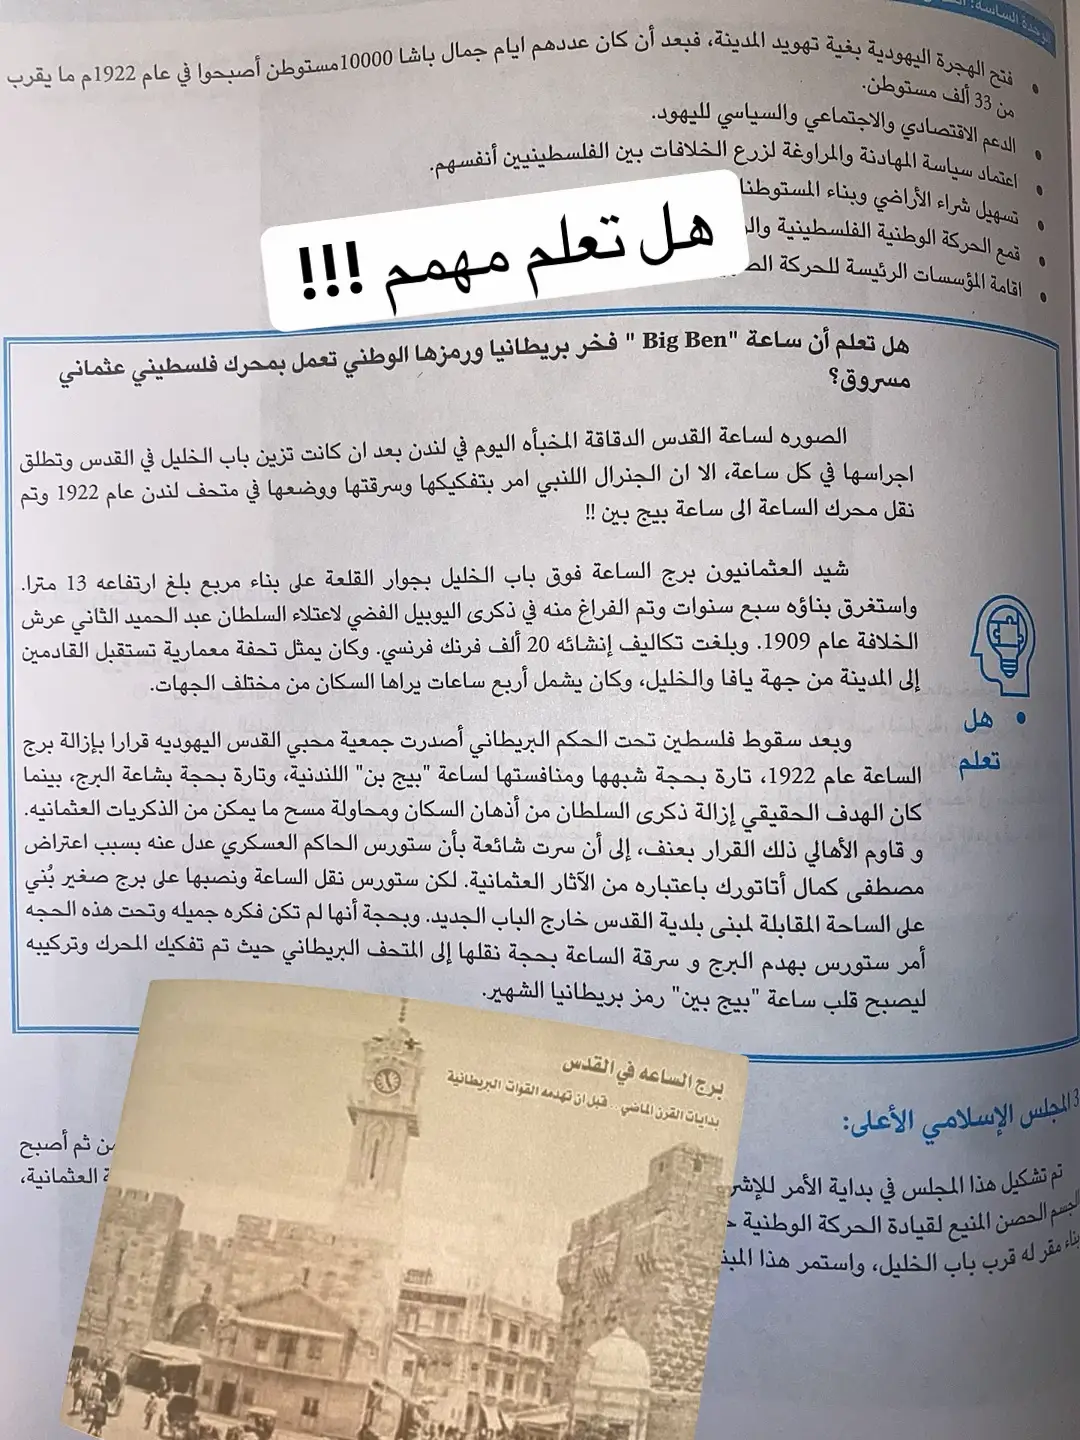 الوحدة السادسة:
فتح الهجرة اليهودية بغية تهويد المدينة، فبعد أن كان عددهم ايام جمال باشا 10000مستوطن أصبحوا في عام 1922م ما يقرب
من 33 ألف مستوطن.
الدعم الاقتصادي والاجتماعي والسياسي لليهود.
اعتماد سياسة المهادنة والمراوغة لزرع الخلافات بين الفلسطينيين أنفسهم.
تسهيل شراء الأراضي وبناء المستوطنا
قمع الحركة الوطنية الفلسطينية
اقامة المؤسسات الرئيسة للحركة
هل تعلم مهمم !!!
هل تعلم أن ساعة "Big Ben " فخر بريطانيا ورمزها الوطني تعمل بمحرك فلسطيني عثماني
مسروق؟
الصوره لساعة القدس الدقاقة المخبأه اليوم في لندن بعد ان كانت تزين باب الخليل في القدس وتطلق
اجراسها في كل ساعة، الا ان الجنرال اللنبي امر بتفكيكها وسرقتها ووضعها في متحف لندن عام 1922 وتم
نقل محرك الساعة الى ساعة بيج بين !!
شيد العثمانيون برج الساعة فوق باب الخليل بجوار القلعة على بناء مربع بلغ ارتفاعه 13 مترا.
واستغرق بناؤه سبع سنوات وتم الفراغ منه في ذكرى اليوبيل الفضي لاعتلاء السلطان عبد الحميد الثاني عرش
الخلافة عام 1909. وبلغت تكاليف إنشائه 20 ألف فرنك فرنسي. وكان يمثل تحفة معمارية تستقبل القادمين
إلى المدينة من جهة يافا والخليل، وكان يشمل أربع ساعات يراها السكان من مختلف الجهات.
هل
تعلم
وبعد سقوط فلسطين تحت الحكم البريطاني أصدرت جمعية محبي القدس اليهوديه قرارا بإزالة برج
الساعة عام 1922، تارة بحجة شبهها ومنافستها لساعة "بيج بن" اللندنية، وتارة بحجة بشاعة البرج، بينما
كان الهدف الحقيقي إزالة ذكرى السلطان من أذهان السكان ومحاولة مسح ما يمكن من الذكريات العثمانيه.
و قاوم الأهالي ذلك القرار بعنف، إلى أن سرت شائعة بأن ستورس الحاكم العسكري عدل عنه بسبب اعتراض
مصطفى كمال أتاتورك باعتباره من الآثار العثمانية. لكن ستورس نقل الساعة ونصبها على برج صغير بُني
على الساحة المقابلة لمبنى بلدية القدس خارج الباب الجديد. وبحجة أنها لم تكن فكره جميله وتحت هذه الحجه
أمر ستورس بهدم البرج و سرقة الساعة بحجة نقلها إلى المتحف البريطاني حيث تم تفكيك المحرك وتركيبه
ليصبح قلب ساعة "بيج بين" رمز بريطانيا الشهير.
برج الساعه في القدس
بدايات القرن الماضي .. قبل ان تهدمه القوات البريطانية
3 المجلس الإسلامي الأعلى:
تم تشكيل هذا المجلس في بداية الأمر للإشر من ثم أصبح
الجسم الحصن المنيع لقيادة الحركة الوطنية العثمانية،
بناء مقر له قرب باب الخليل، واستمر هذا المبن